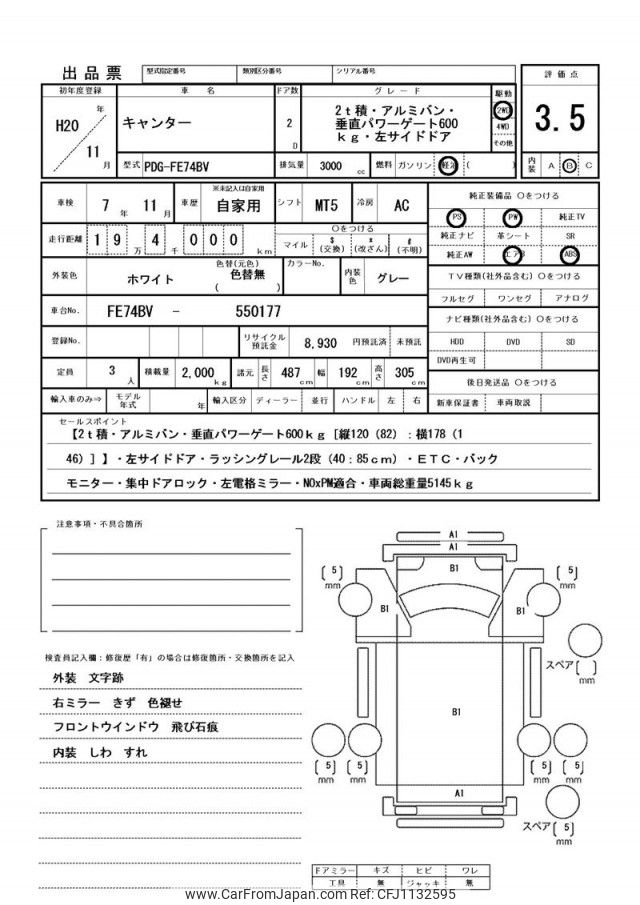 出品票
型式指定番号 類別区分番号 シリアル番号
評価点
3.5
内装 A B C
初年度登録 車名 ドア数 グレード 駆動
H20年 11月
キャンター
2D
2t積・アルミバン・
垂直パワーゲート600
kg・左サイドドア
2WD
4WD
その他
型式 PDG-FE74BV 排気量 3000cc 燃料 ガソリン 軽油 ( )
車検 7年 11月 車歴 ※未記入は自家用 自家用 シフト MT5 冷房 AC
走行距離 19万4千000km
〇をつける
マイル $(交換) *(改ざん) #(不明)
外装色 ホワイト 色替(元色) 色替無 ( ) カラーNo. 内装色 グレー
車台No. FE74BV - 550177
登録No. リサイクル預託金 8,930 円預託済 未預託
定員 3人 積載量 2,000kg 諸元 長さ 487cm 幅 192cm 高さ 305cm
輸入車のみ⇒ モデル年式 年 輸入区分 ディーラー 並行 ハンドル 左 右
純正装備品 〇をつける
PS PW 純正TV
純正ナビ 革シート SR
純正AW エアB ABS
TV種類(社外品含む) 〇をつける
フルセグ ワンセグ アナログ
ナビ種類(社外品含む) 〇をつける
HDD DVD SD
DVD再生可
後日発送品 〇をつける
新車保証書 車両取説
セールスポイント
【2t積・アルミバン・垂直パワーゲート600kg[縦120(82):横178(1
46)]】・左サイドドア・ラッシングレール2段(40:85cm)・ETC・バック
モニター・集中ドアロック・左電格ミラー・NOxPM適合・車両総重量5145kg
注意事項・不具合箇所
検査員記入欄:修復歴「有」の場合は修復箇所・交換箇所を記入
外装 文字跡
右ミラー きず 色褪せ
フロントウインドウ 飛び石痕
内装 しわ すれ
A1
A1
B1
[5]mm [5]mm
B1 B1
スペア[ ]mm
B1
[5]mm [5]mm [5]mm [5]mm
A1
スペア[5]mm
ドアミラー キズ ヒビ ワレ
工具 無 ジャッキ 無
www.CarFromJapan.com Ref: CFJ1132595